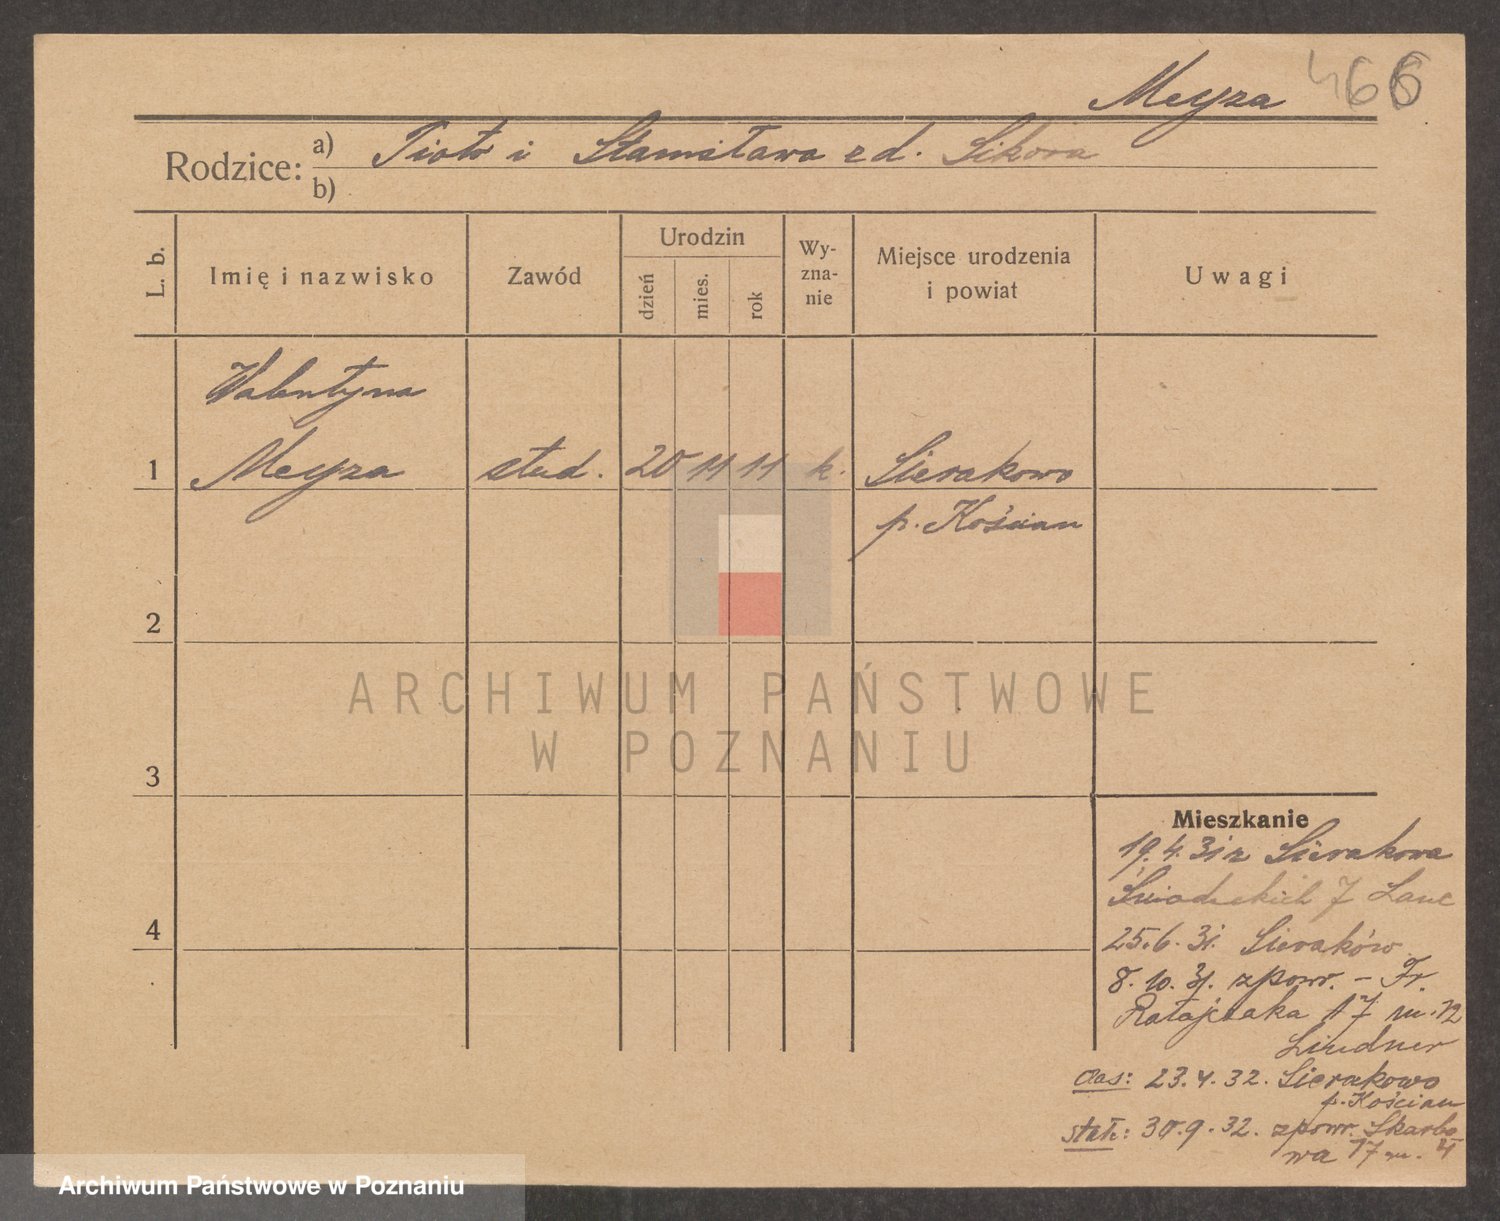 Meyza 466
Rodzice: a) Piotr i Stanisława z d. Sikora
b)
L. b.
Imię i nazwisko
Zawód
Urodzin
dzień
mies.
rok
Wy-
zna-
nie
Miejsce urodzenia
i powiat
Uwagi
Walentyna
1 Meyza stud. 20 11 11 k. Sierakowo
p. Kościan
2
ARCHIWUM PAŃSTWOWE
W POZNANIU
3
Mieszkanie
19.4.31 z Sierakowa
Śniadeckich 7
4
25.6.31. Sieraków
8.10.31. z powr. - Fr.
Ratajczaka 17 m. 12
Lindner
czas: 23.4.32. Sierakowo
p. Kościan
stałe: 30.9.32. z powr. Skarbo
wa 17 m. 4
Archiwum Państwowe w Poznaniu